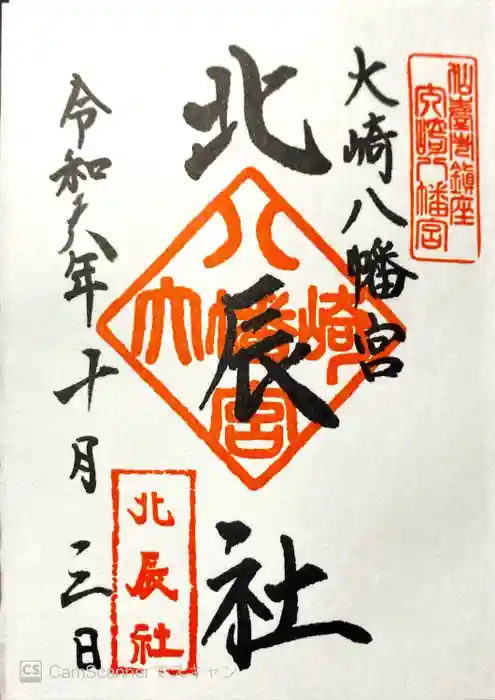 仙臺市鎮座
大崎八幡宮
大崎八幡宮
北辰社
八
大幡崎
宮
令和六年十月三日
北辰社
CS CamScanner でスキャン